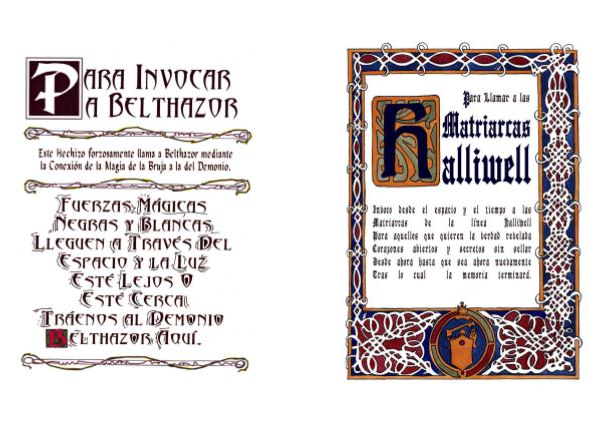 Para Invocar
a Belthazor
Este Hechizo forzosamente llama a Belthazor mediante
la Conexión de la Magia de la Bruja a la del Demonio.
Fuerzas Mágicas
Negras y Blancas
Lleguen a Través Del
Espacio y la Luz
Esté Lejos O
Esté Cerca
Tráenos al Demonio
Belthazor Aquí.
Para Llamar a las
Matriarcas
Halliwell
Invoco desde el espacio y el tiempo a las
Matriarcas de la línea Halliwell
Para aquellos que quieren la verdad rebelada
Corazones abiertos y secretos sin sellar
Desde ahora hasta que sea ahora nuevamente
Tras lo cual la memoria terminará.